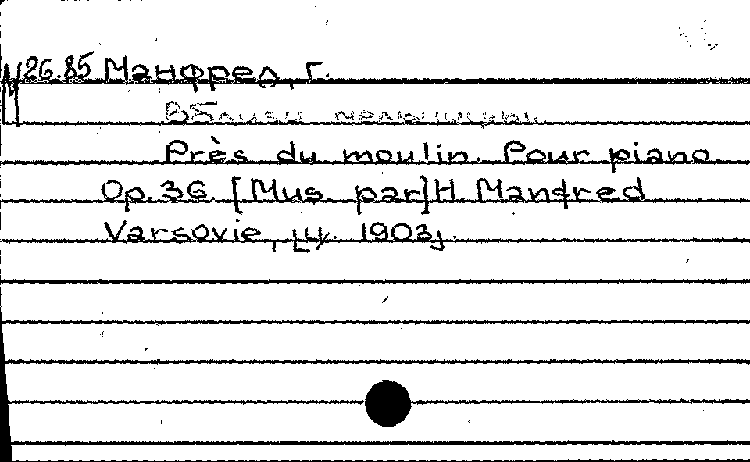 26.85 Манфред, Г.
Вблизи мельницы.
Près du moulin. Pour piano.
Op. 36. [Mus. par] H. Manfred
Varsovie, ц. 1903.